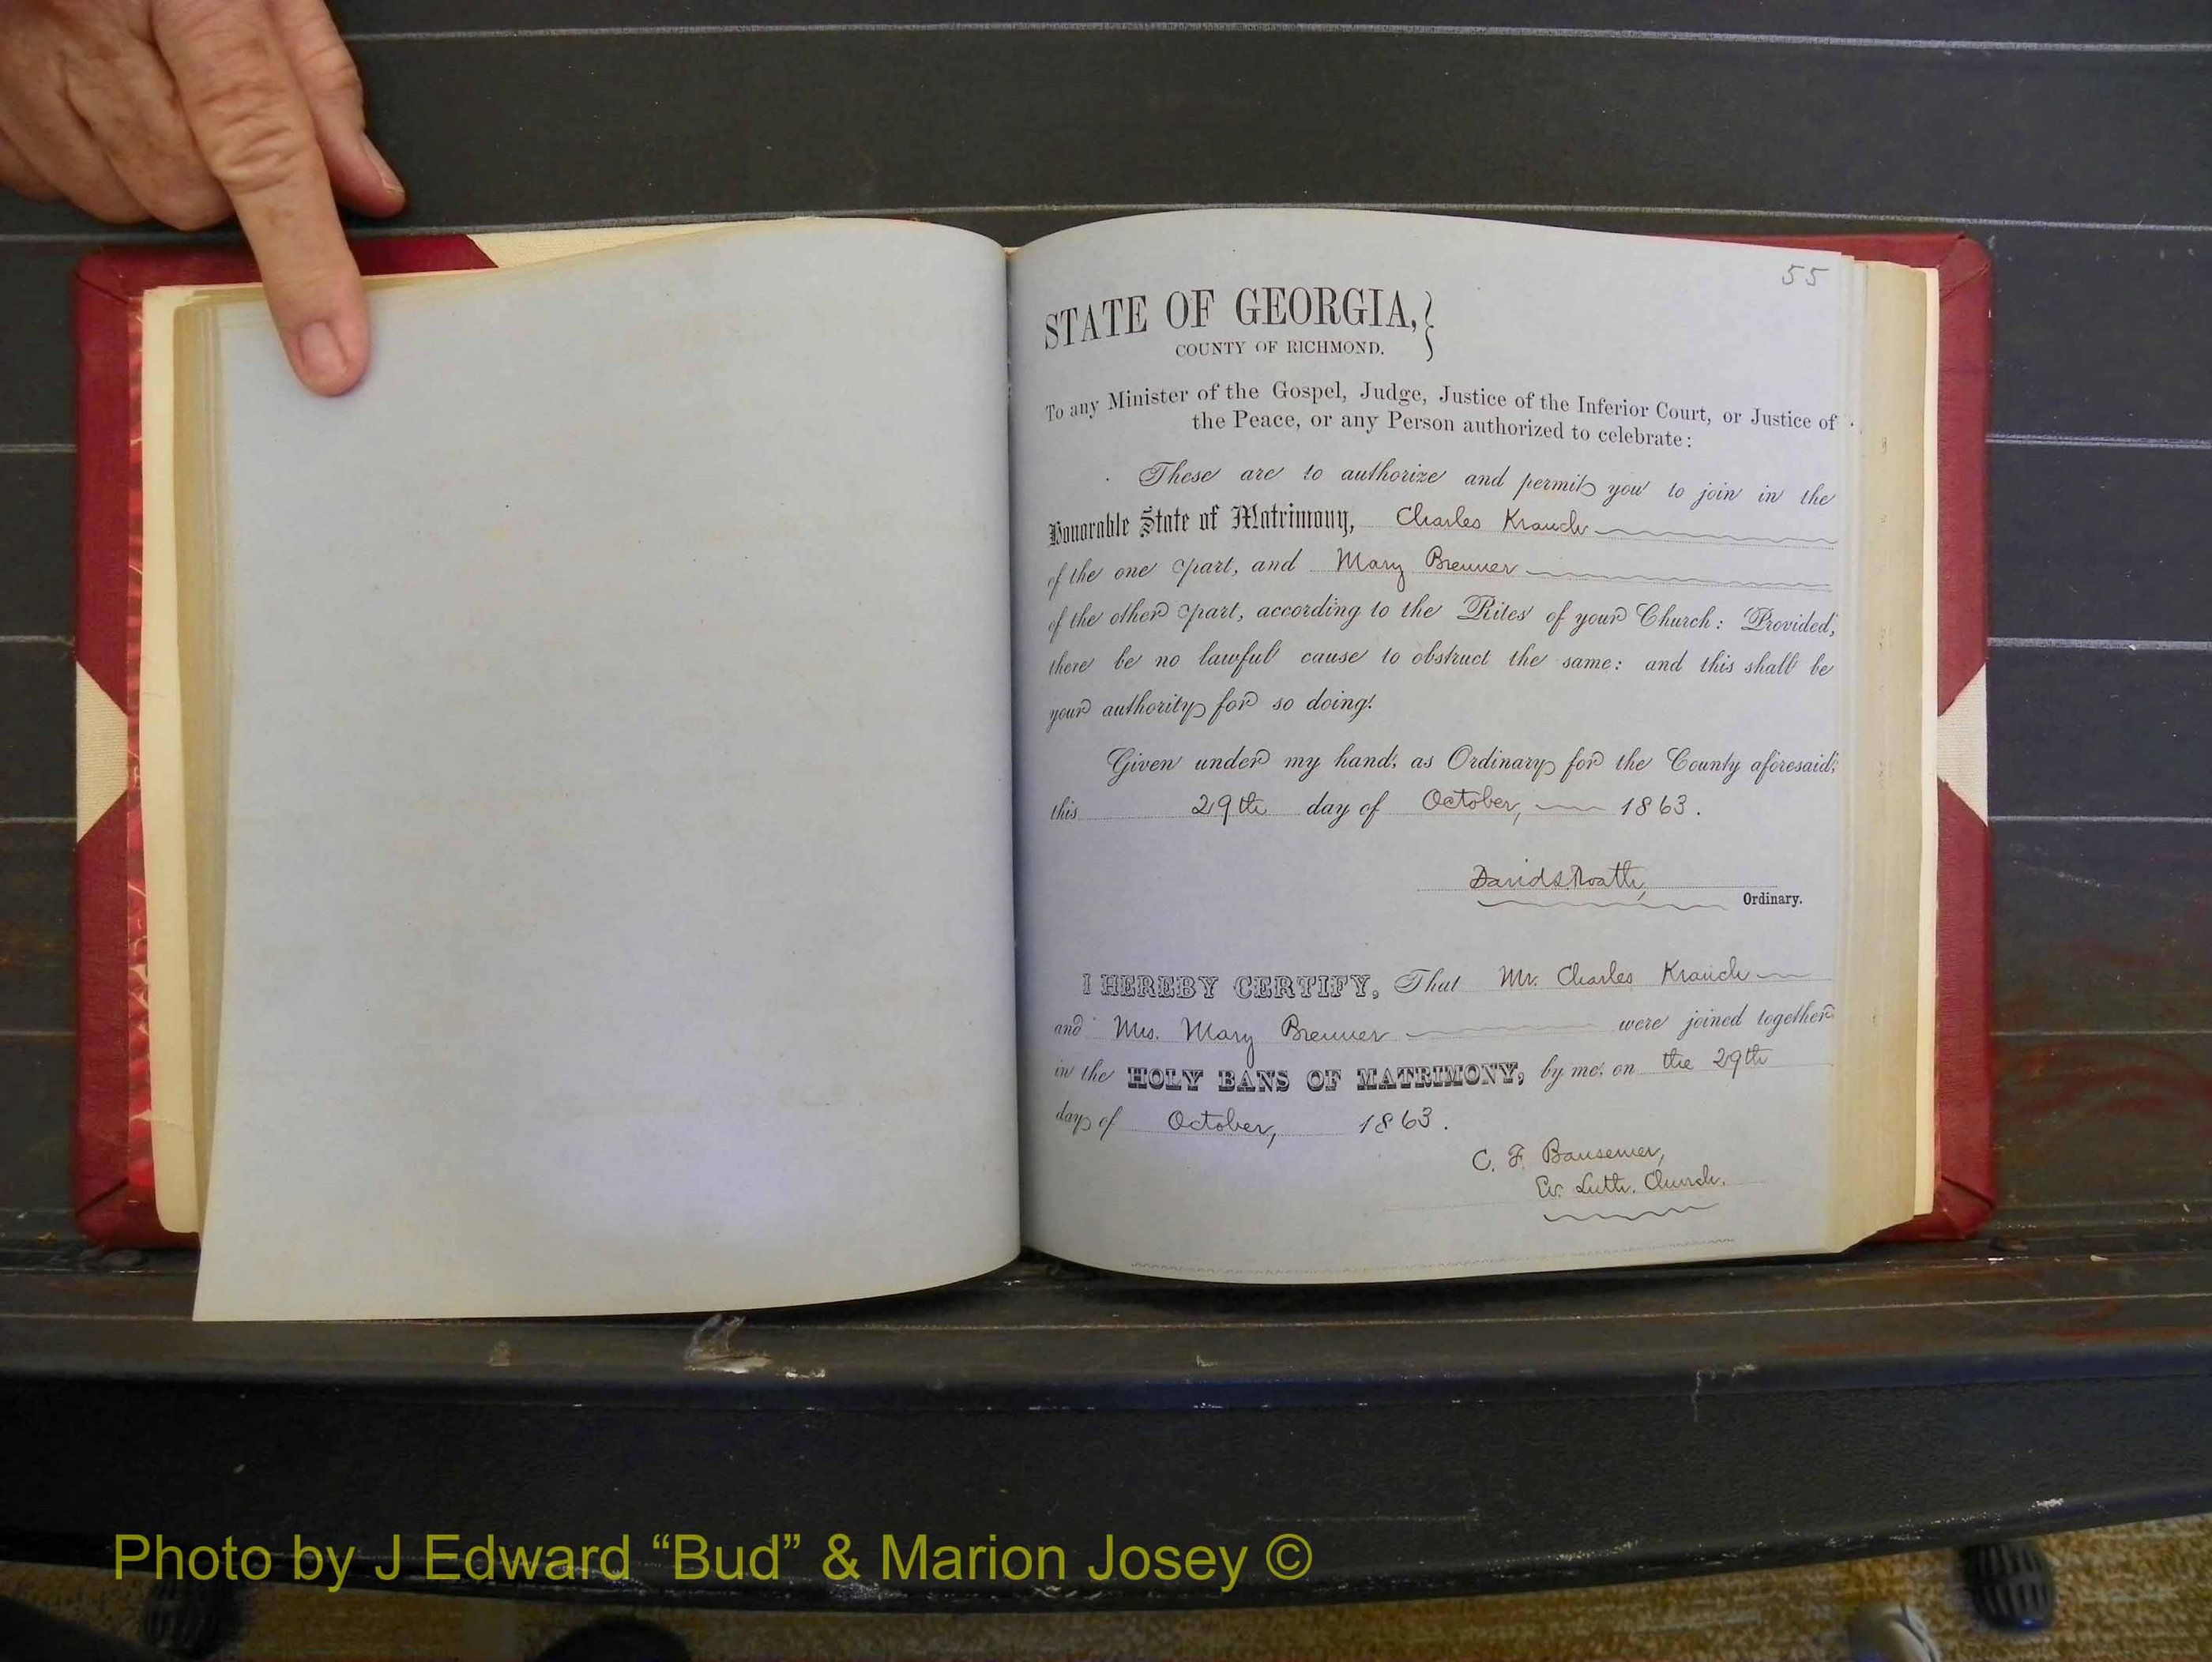 55
STATE OF GEORGIA,
COUNTY OF RICHMOND.
To any Minister of the Gospel, Judge, Justice of the Inferior Court, or Justice of
the Peace, or any Person authorized to celebrate:
These are to authorize and permit you to join in the
Honorable State of Matrimony, Charles Krauch
of the one part, and Mary Brenner
of the other part, according to the Rites of your Church: Provided,
there be no lawful cause to obstruct the same: and this shall be
your authority for so doing.
Given under my hand, as Ordinary for the County aforesaid,
this 29th day of October, 1863.
David S. Roath,
Ordinary.
I HEREBY CERTIFY, That Mr. Charles Krauch
and Mrs. Mary Brenner were joined together
in the HOLY BANS OF MATRIMONY, by me, on the 29th
day of October, 1863.
C. F. Bansemer,
Ev. Luth. Church.
Photo by J Edward “Bud” & Marion Josey ©